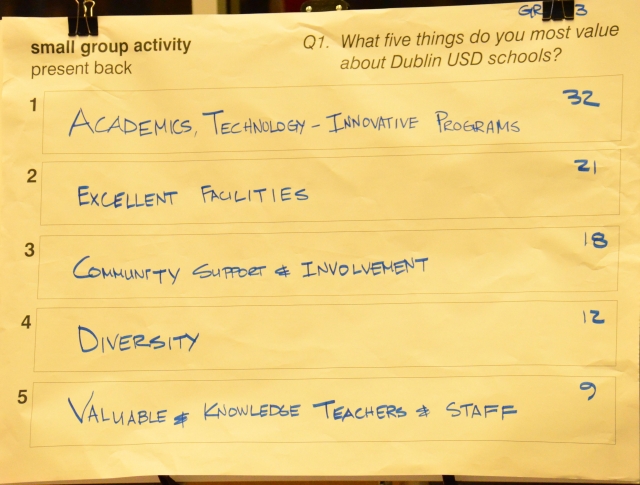 GR 3
small group activity
present back
Q1. What five things do you most value
about Dublin USD schools?
1 ACADEMICS, TECHNOLOGY - INNOVATIVE PROGRAMS 32
2 EXCELLENT FACILITIES 21
3 COMMUNITY SUPPORT & INVOLVEMENT 18
4 DIVERSITY 12
5 VALUABLE & KNOWLEDGE TEACHERS & STAFF 9